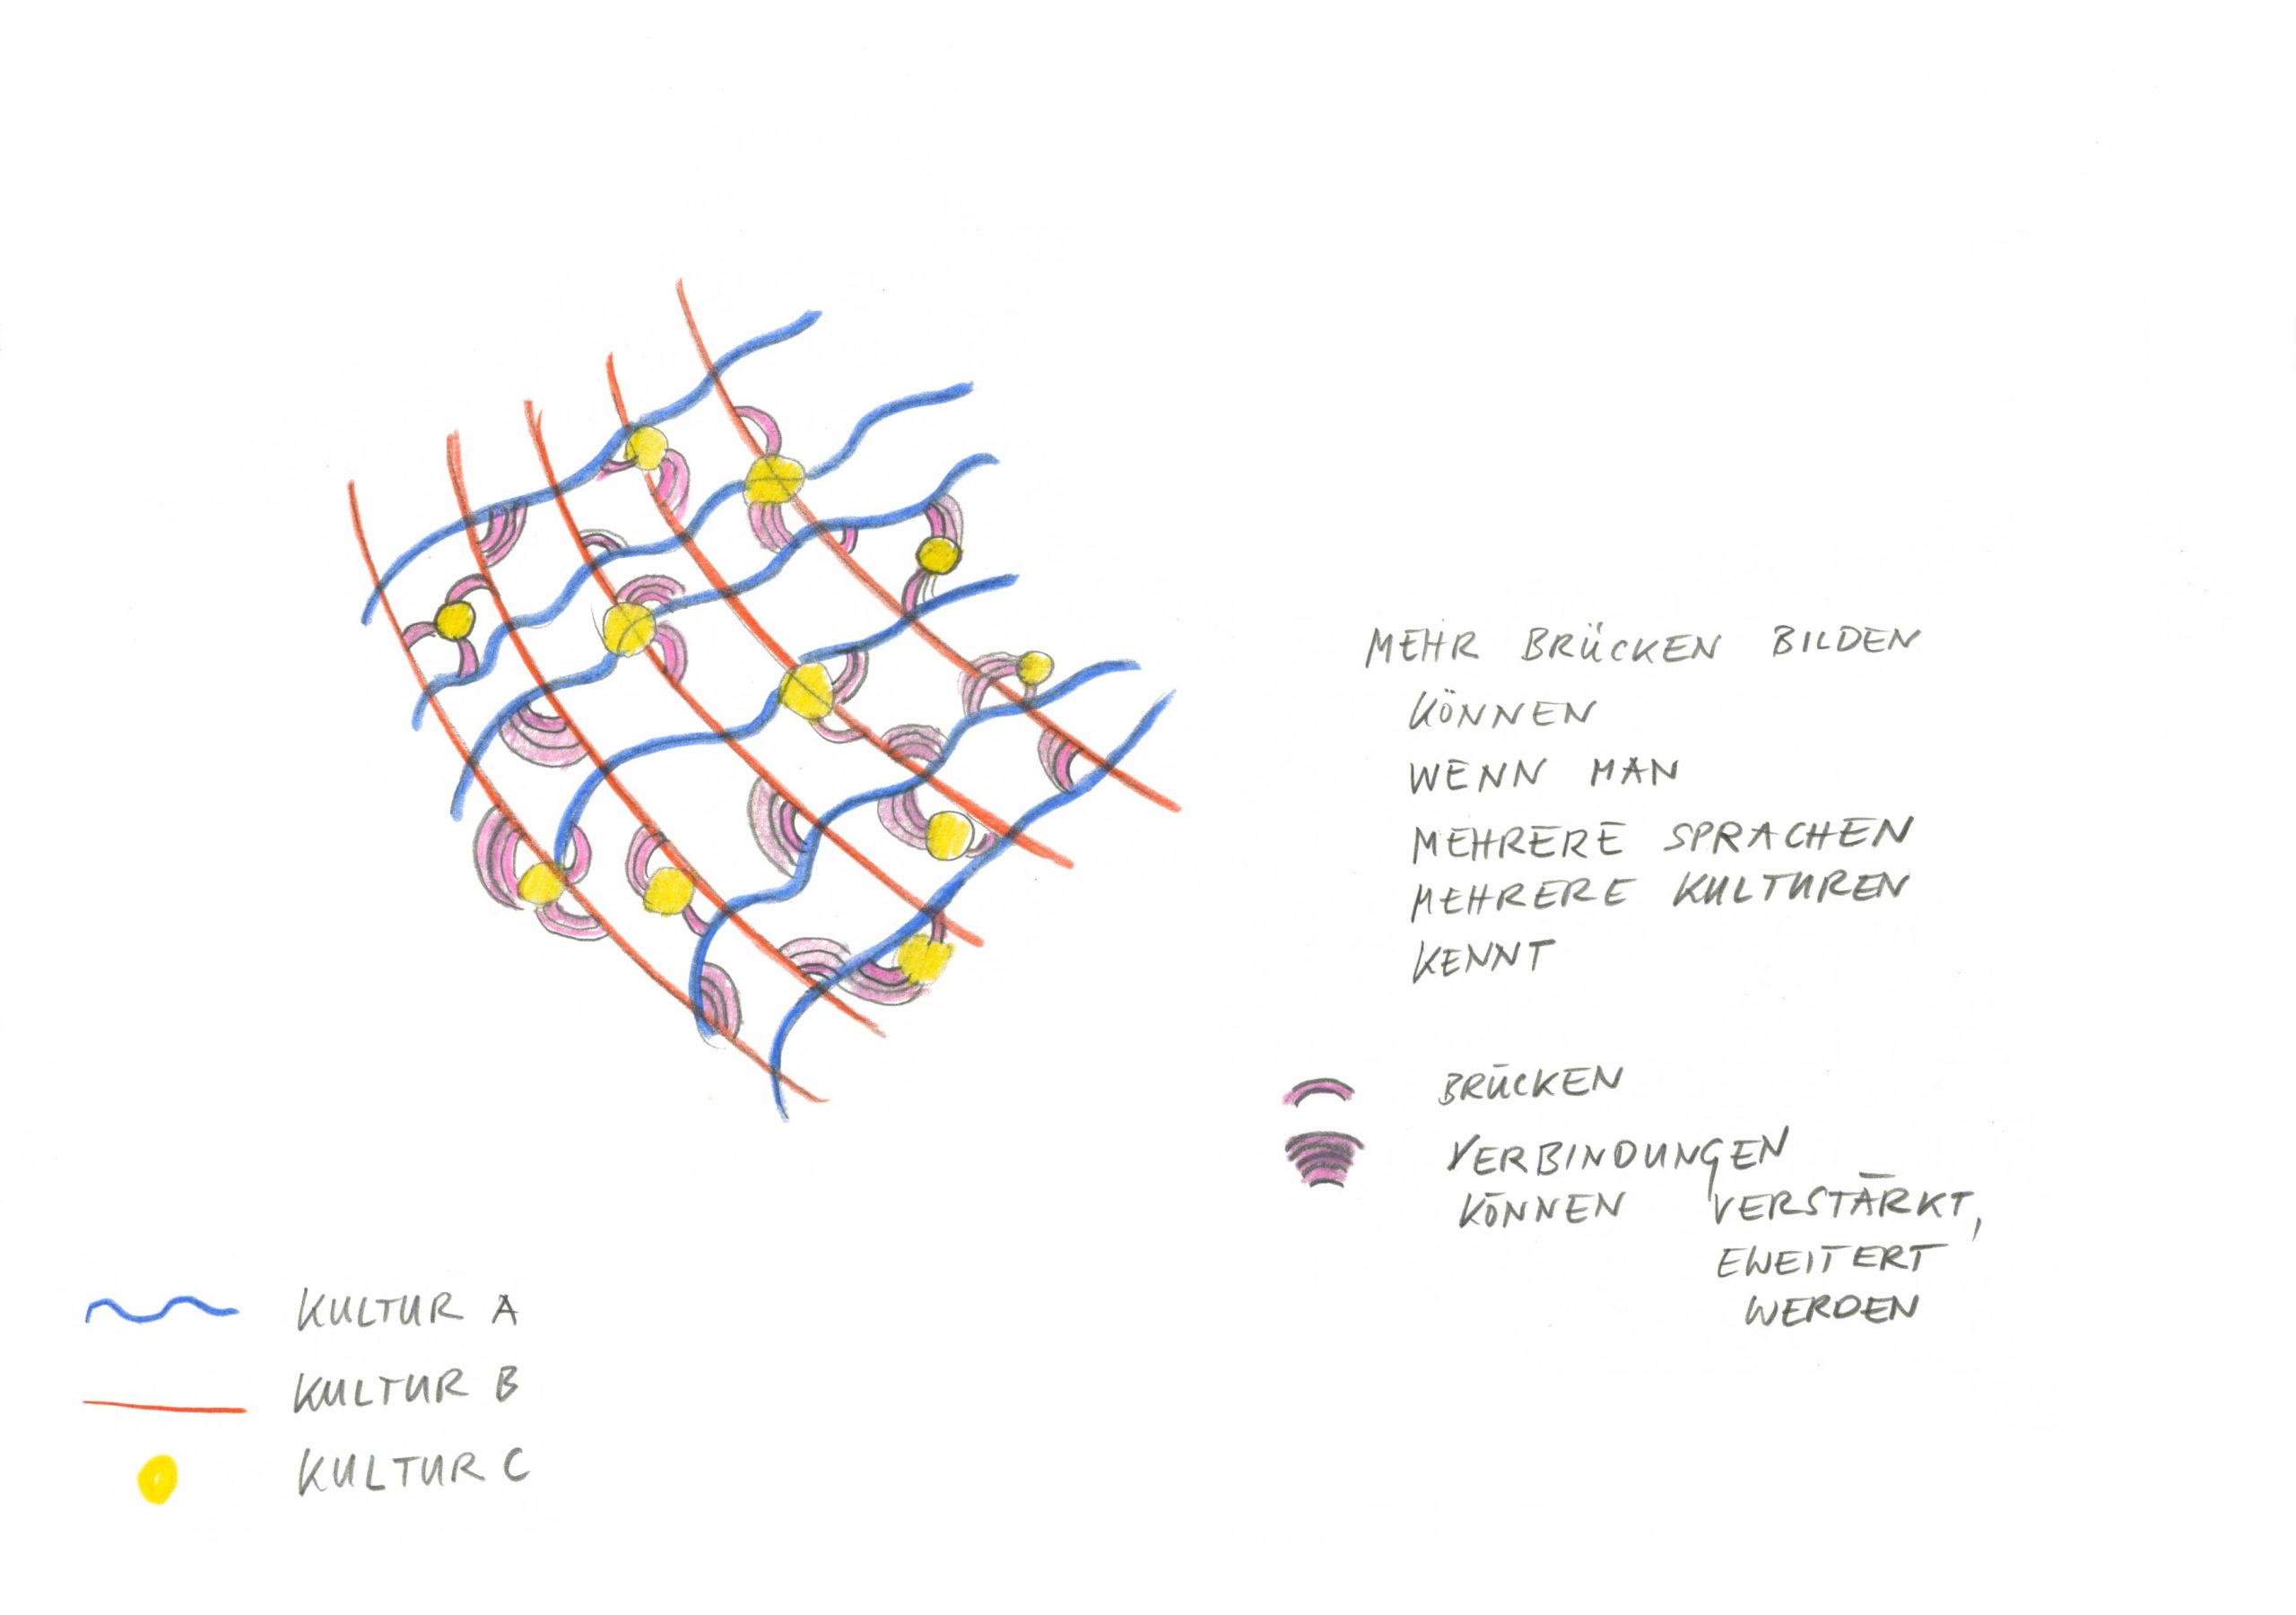 MEHR BRÜCKEN BILDEN
KÖNNEN
WENN MAN
MEHRERE SPRACHEN
MEHRERE KULTUREN
KENNT
BRÜCKEN
VERBINDUNGEN
KÖNNEN VERSTÄRKT,
EWEITERT
WERDEN
KULTUR A
KULTUR B
KULTUR C